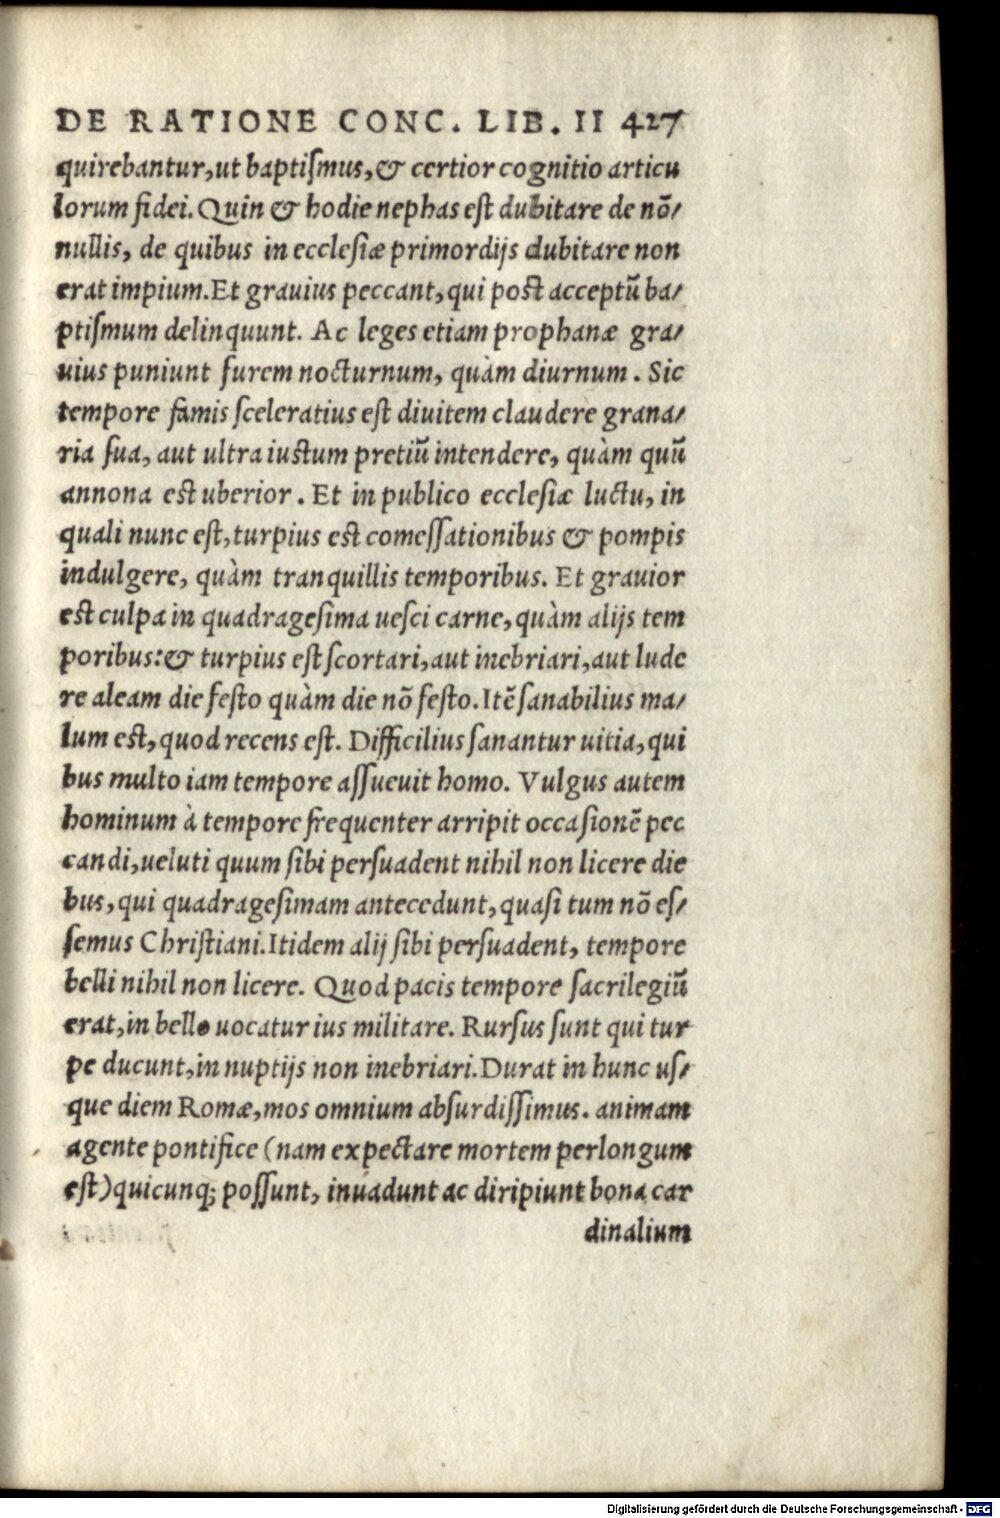 DE RATIONE CONC. LIB. II 427
quirebantur, ut baptiſmus, & certior cognitio articu
lorum fidei. Quin & hodie nephas eſt dubitare de nō/
nullis, de quibus in eccleſiæ primordijs dubitare non
erat impium. Et grauius peccant, qui poſt acceptū ba/
ptiſmum delinquunt. Ac leges etiam prophanæ gra/
uius puniunt furem nocturnum, quàm diurnum. Sic
tempore famis ſceleratius eſt diuitem claudere grana/
ria ſua, aut ultra iuſtum pretiū intendere, quàm quū
annona eſt uberior. Et in publico eccleſiæ luctu, in
quali nunc eſt, turpius eſt comeſſationibus & pompis
indulgere, quàm tranquillis temporibus. Et grauior
eſt culpa in quadrageſima ueſci carne, quàm alijs tem
poribus: & turpius eſt ſcortari, aut inebriari, aut lude
re aleam die feſto quàm die nō feſto. Itē ſanabilius ma/
lum eſt, quod recens eſt. Difficilius ſanantur uitia, qui
bus multo iam tempore aſſueuit homo. Vulgus autem
hominum à tempore frequenter arripit occaſionē pec
candi, ueluti quum ſibi perſuadent nihil non licere die
bus, qui quadrageſimam antecedunt, quaſi tum nō eſ/
ſemus Chriſtiani. Itidem alij ſibi perſuadent, tempore
belli nihil non licere. Quod pacis tempore ſacrilegiū
erat, in bello uocatur ius militare. Rurſus ſunt qui tur
pe ducunt, in nuptijs non inebriari. Durat in hunc uſ/
que diem Romæ, mos omnium abſurdiſſimus. animam
agente pontifice (nam expectare mortem perlongum
eſt) quicunq; poſſunt, inuadunt ac diripiunt bona car
dinalium
Digitalisierung gefördert durch die Deutsche Forschungsgemeinschaft - DFG